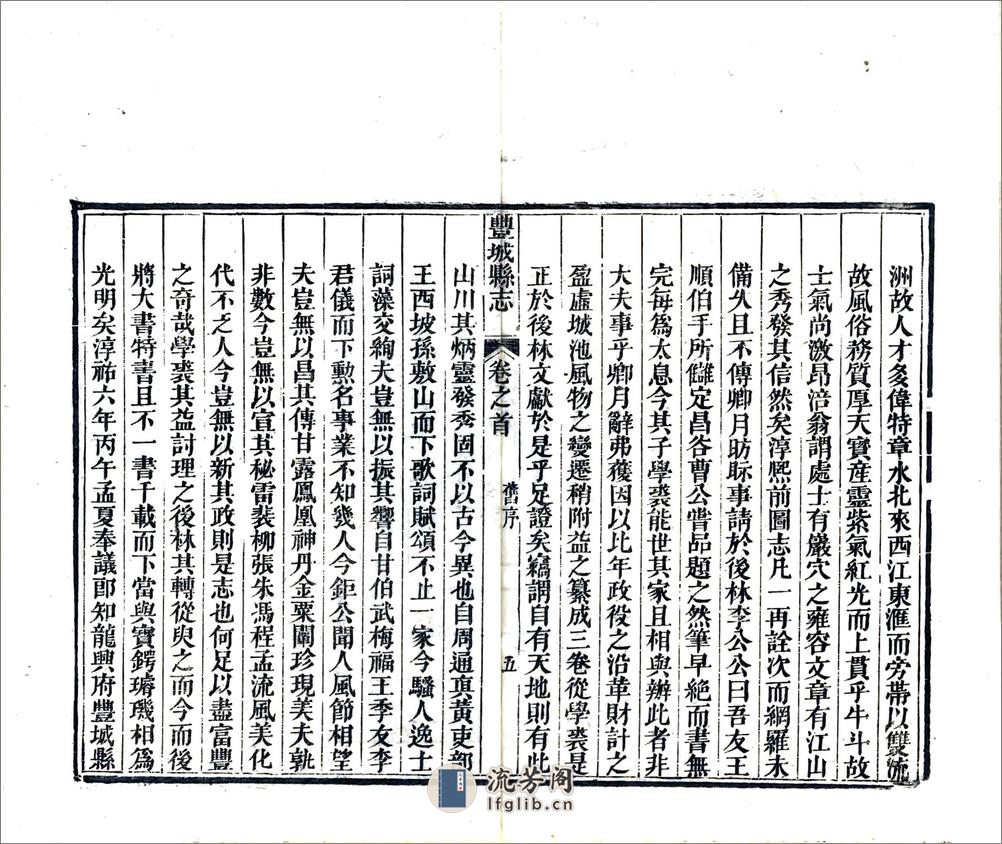 洲故人才多偉特章水北來西江東滙而旁帶以雙流
故風俗務質厚天寶産靈紫氣紅光而上貫乎牛斗故
士氣尚激昂涪翁謂處士有巖穴之雍容文章有江山
之秀發其信然矣淳熙前圖志凡一再詮次而網羅未
備久且不傳卿月昉眎事請於後林李公公曰吾友王
順伯手所讎定昌谷曹公嘗品題之然筆早絕而書無
完每爲太息今其子學裘能世其家且相與辦此者非
大夫事乎卿月辭弗獲因以比年政役之沿革財計之
盈虛城池風物之變遷稍附益之纂成三卷從學裘是
正於後林文獻於是乎足證矣竊謂自有天地則有此
豐城縣志 卷之首 舊序 五
山川其炳靈發秀固不以古今異也自周通真黃吏部
王西坡孫敷山而下歌詞賦頌不止一家今騷人逸士
詞藻交絢夫豈無以振其響自甘伯武梅福王季友李
君儀而下勲名事業不知幾人今鉅公聞人風節相望
夫豈無以昌其傳甘露鳳凰神丹金粟闡珍現美夫孰
非數今豈無以宣其秘雷裴柳張朱馮程孟流風美化
代不乏人今豈無以新其政則是志也何足以盡富豐
之奇哉學裘其益討理之後林其轉從臾之而今而後
將大書特書且不一書千載而下當與寶鍔璿璣相爲
光明矣淳祐六年丙午孟夏奉議郎知龍興府豐城縣
流芳阁
lfglib.cn